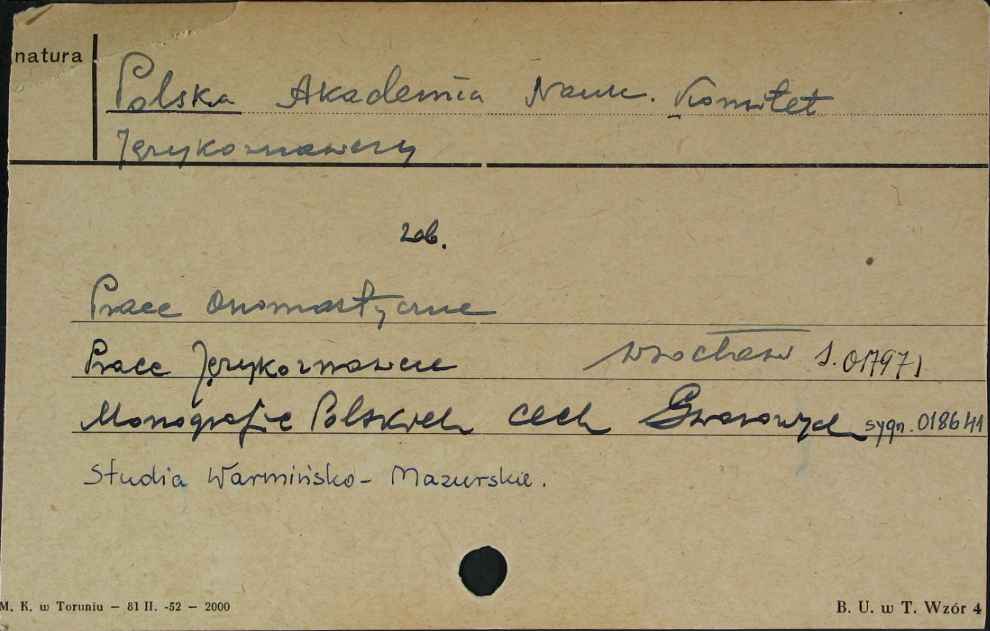 natura
Polska Akademia Nauk. Komitet
Językoznawczy
zob.
Prace Onomastyczne
Prace Językoznawcze Wrocław S. 017971
Monografie Polskich Cech Gwarowych sygn. 018641
Studia Warmińsko-Mazurskie.
M. K. w Toruniu — 81 II. -52 — 2000
B. U. w T. Wzór 4